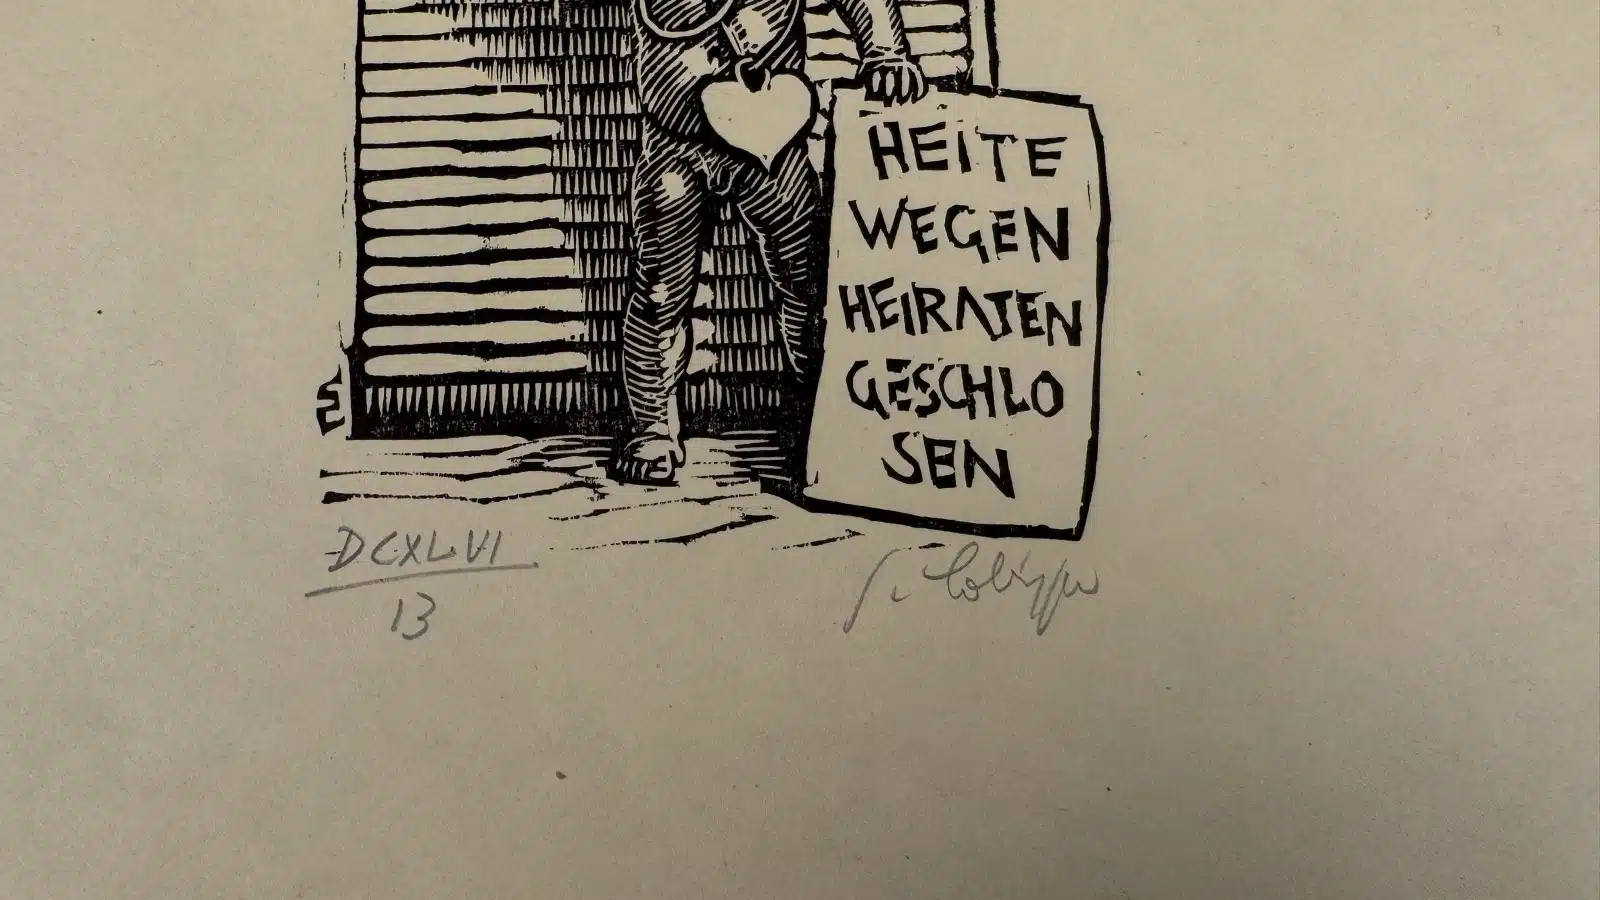 HEITE
WEGEN
HEIRATEN
GESCHLO
SEN
DCXLVI
13